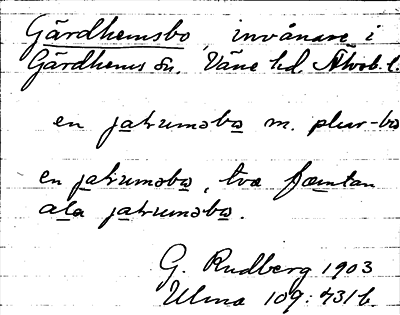 Gärdhemsbo, invånare i
Gärdhems sn. Väne hd. Älvsb. l.
en jaʀuməbo m. plur -bo
en jaʀuməbo, tvɷ fæmtan
ala jaʀuməbo.
G. Rudberg 1903
Ulma 109: 431 b.